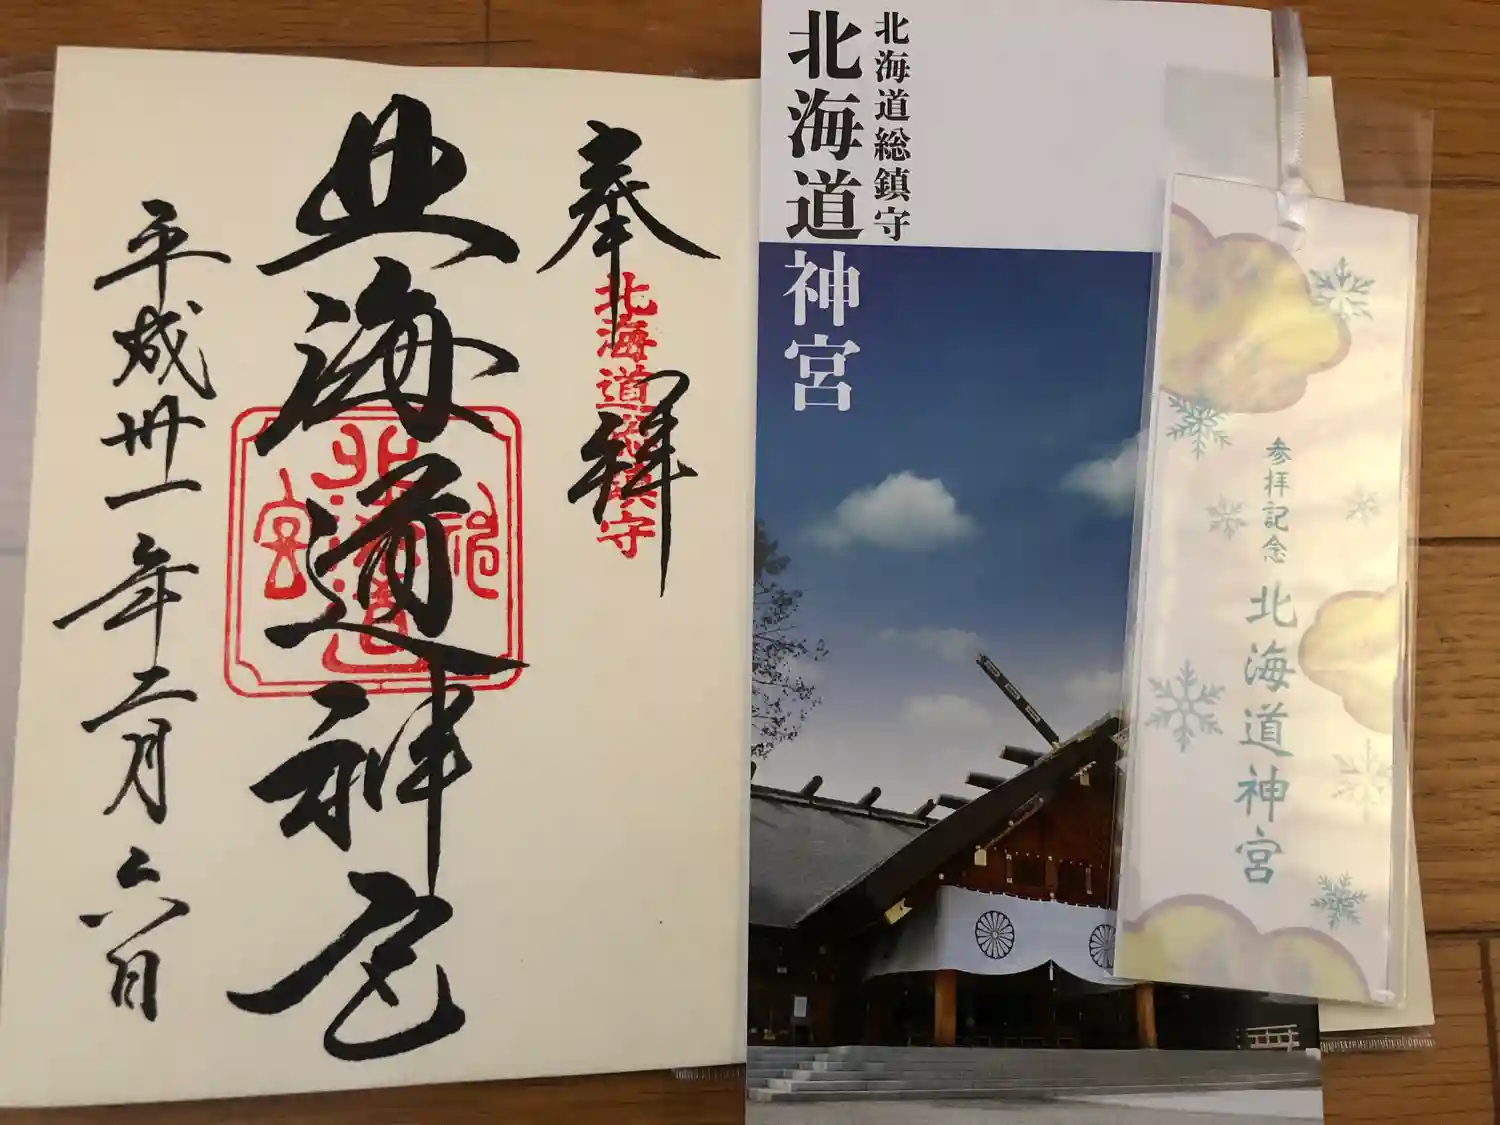 奉拝
北海道総鎮守
北海道神宮
北海道神宮
平成卅一年二月六日
北海道総鎮守
北海道神宮
参拝記念
北海道神宮